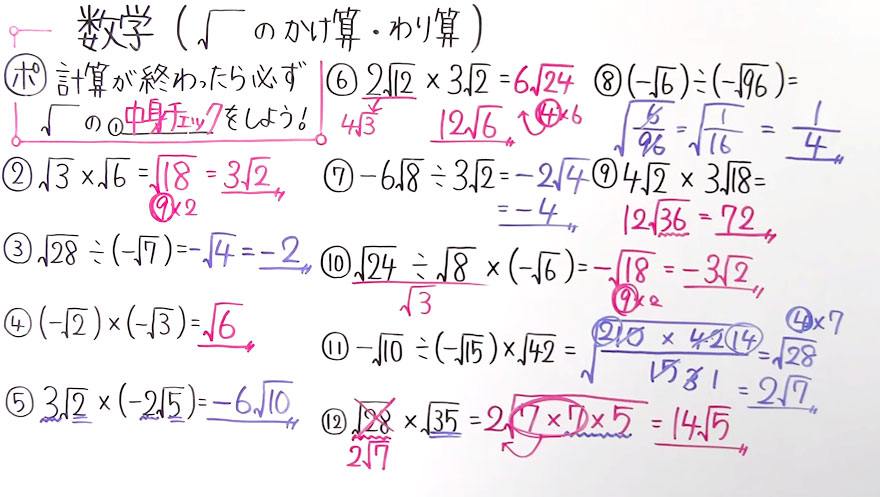 数学 (√ のかけ算・わり算)
ポ 計算が終わったら必ず
√ の①中身チェックをしよう!
② √3 × √6 = √18 = 3√2
⑨×2
③ √28 ÷ (-√7) = -√4 = -2
④ (-√2) × (-√3) = √6
⑤ 3√2 × (-2√5) = -6√10
⑥ 2√12 × 3√2 = 6√24
4√3 12√6 ④×6
⑦ -6√8 ÷ 3√2 = -2√4
= -4
⑧ (-√6) ÷ (-√96) =
√6/96 = √1/16 = 1/4
⑨ 4√2 × 3√18 =
12√36 = 72
⑩ √24 ÷ √8 × (-√6) = -√18 = -3√2
√3 ⑨×2
⑪ -√10 ÷ (-√15) × √42 = √210 × 4214 / 1531 = √28
④×7
= 2√7
⑫ √28 × √35 = 2√7×7×5 = 14√5
2√7